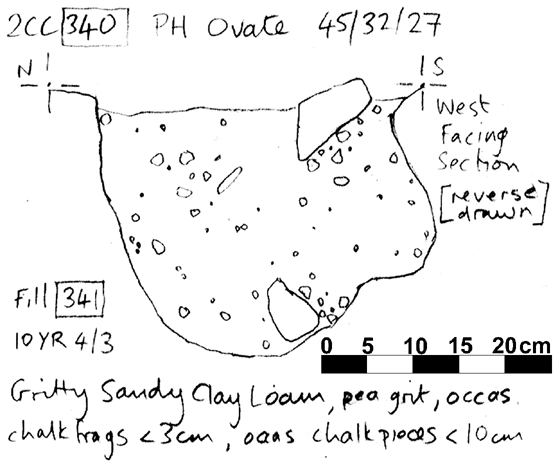 2CC 340 PH Ovate 45/32/27
N S
West
Facing
Section
[reverse
drawn]
Fill 341
10YR 4/3
0 5 10 15 20cm
Gritty Sandy Clay Loam, pea grit, occas.
chalk frags <3cm, occas chalk pieces <10cm